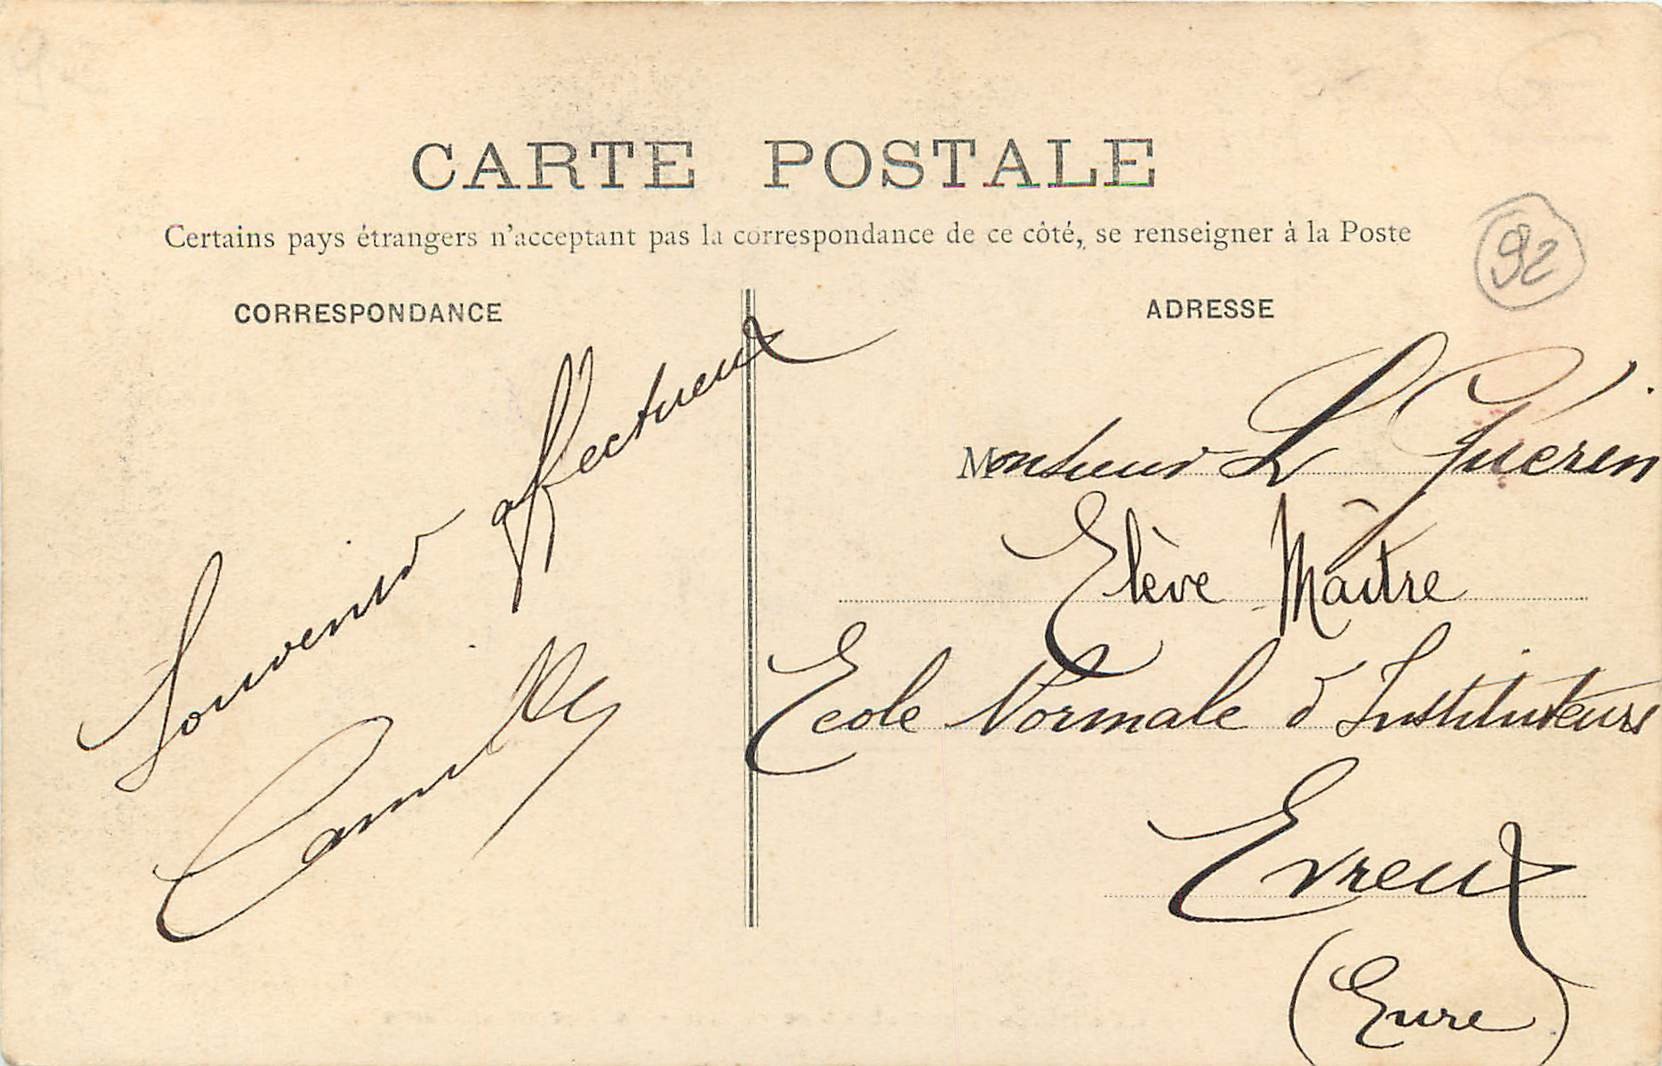 CARTE POSTALE
Certains pays étrangers n'acceptant pas la correspondance de ce côté, se renseigner à la Poste
92
CORRESPONDANCE
Souvenir affectueux
Camille
ADRESSE
Monsieur L Guérin
Elève Maître
Ecole Normale d'Instituteurs
Evreux
(Eure)